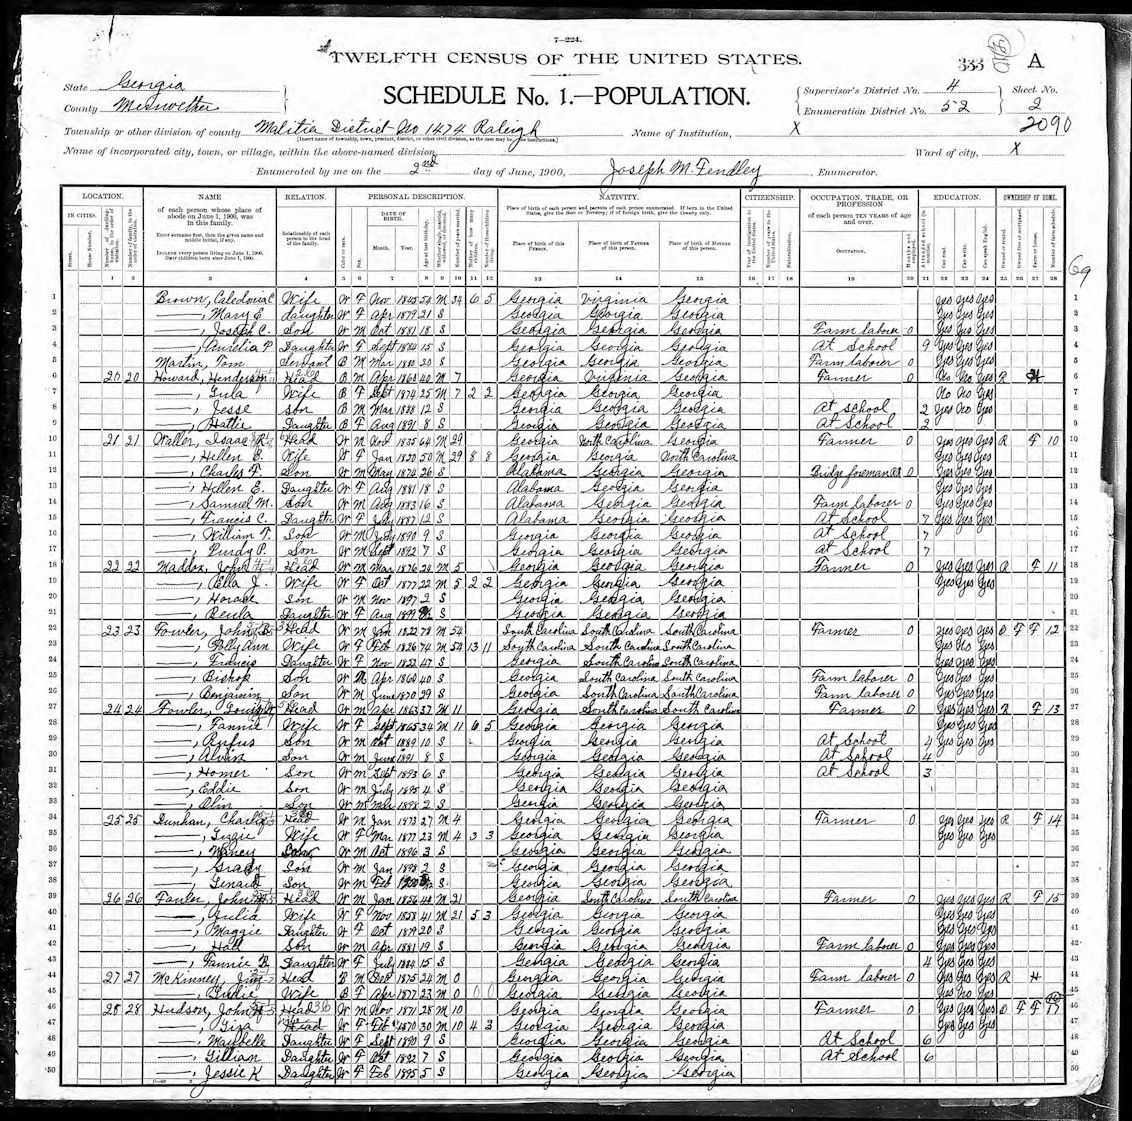 7-224.
TWELFTH CENSUS OF THE UNITED STATES.
333 A
State Georgia
County Meriwether
SCHEDULE No. 1.—POPULATION.
Supervisor's District No. 4
Enumeration District No. 52
Sheet No.
2
2090
Township or other division of county Malitia District No 1474 Raleigh Name of Institution, X
Name of incorporated city, town, or village, within the above-named division, Ward of city, X
Enumerated by me on the 2nd day of June, 1900, Joseph M. Fendley, Enumerator.
LOCATION. NAME RELATION. PERSONAL DESCRIPTION. NATIVITY. CITIZENSHIP. OCCUPATION, TRADE, OR PROFESSION EDUCATION. OWNERSHIP OF HOME.
69
1 Brown, Caledonia C Wife W F Nov 1845 54 M 34 6 5 Georgia Virginia Georgia yes yes yes 1
2 ——, Mary E daughter W F Apr 1879 21 S Georgia Georgia Georgia yes yes yes 2
3 ——, Joseph C. Son W M Oct 1881 18 S Georgia Georgia Georgia Farm laborer 0 yes yes yes 3
4 ——, Aurelia P Daughter W F Sept 1884 15 S Georgia Georgia Georgia At School 9 yes yes yes 4
5 Martin, Tom Servant B M Mar 1880 20 S Georgia Georgia Georgia Farm laborer 0 yes yes yes 5
6 20 20 Howard, Henderson Head B M Apr 1860 40 M 7 Georgia Virginia Georgia Farmer 0 No No yes R 6
7 ——, Lula Wife B F Sept 1874 25 M 7 2 2 Georgia Georgia Georgia No No yes 7
8 ——, Jesse Son B M Mar 1888 12 S Georgia Georgia Georgia At school 2 yes No yes 8
9 ——, Hattie Daughter B F Aug 1891 8 S Georgia Georgia Georgia At School 2 9
10 21 21 Waller, Isaac R. Head W M Nov 1835 64 M 29 Georgia North Carolina Georgia Farmer 0 yes yes yes R F 10 10
11 ——, Hellen E. Wife W F Jan 1850 50 M 29 8 8 Georgia Georgia North Carolina yes yes yes 11
12 ——, Charles F. Son W M May 1874 26 S Alabama Georgia Georgia Bridge foreman 0 yes yes yes 12
13 ——, Hellen E. Daughter W F Aug 1881 18 S Alabama Georgia Georgia yes yes yes 13
14 ——, Samuel M. Son W M Aug 1883 16 S Alabama Georgia Georgia Farm laborer 0 yes yes yes 14
15 ——, Francis C. Daughter W F July 1887 12 S Alabama Georgia Georgia At School 7 yes yes yes 15
16 ——, William T. Son W M July 1890 9 S Georgia Georgia Georgia At School 7 16
17 ——, Purdy P. Son W M Sept 1892 7 S Georgia Georgia Georgia At School 7 17
18 22 22 Maddox, John Head W M Mar 1876 24 M 5 Georgia Georgia Georgia Farmer 0 yes yes yes R F 11 18
19 ——, Ella J. Wife W F Oct 1877 22 M 5 2 2 Georgia Georgia Georgia yes yes yes 19
20 ——, Horace Son W M Nov 1897 2 S Georgia Georgia Georgia 20
21 ——, Beula Daughter W F Aug 1899 S Georgia Georgia Georgia 21
22 23 23 Fowler, John B. Head W M Jan 1822 78 M 54 South Carolina South Carolina South Carolina Farmer 0 yes yes yes O F F 12 22
23 ——, Polly Ann Wife W F Feb 1826 74 M 54 13 11 South Carolina South Carolina South Carolina yes No yes 23
24 ——, Francis Daughter W F Nov 1852 47 S Georgia South Carolina South Carolina yes yes yes 24
25 ——, Bishop Son W M Apr 1860 40 S Georgia South Carolina South Carolina Farm laborer 0 yes yes yes 25
26 ——, Benjamin Son W M June 1870 29 S Georgia South Carolina South Carolina Farm laborer 0 yes yes yes 26
27 24 24 Fowler, Head W M Apr 1863 37 M 11 Georgia South Carolina South Carolina Farmer 0 yes yes yes R F 13 27
28 ——, Fannie Wife W F Sept 1865 34 M 11 6 5 Georgia Georgia Georgia yes yes yes 28
29 ——, Rufus Son W M Oct 1889 10 S Georgia Georgia Georgia At School 4 yes yes yes 29
30 ——, Alvin Son W M June 1891 8 S Georgia Georgia Georgia At School 4 30
31 ——, Homer Son W M Sept 1893 6 S Georgia Georgia Georgia At School 3 31
32 ——, Eddie Son W M July 1895 4 S Georgia Georgia Georgia 32
33 ——, Olin Son W M Mch 1898 2 S Georgia Georgia Georgia 33
34 25 25 Dunhan, Charlie Head W M Jan 1873 27 M 4 Georgia Georgia Georgia Farmer 0 yes yes yes R F 14 34
35 ——, Lizzie Wife W F Mar 1877 23 M 4 3 3 Georgia Georgia Georgia yes yes yes 35
36 ——, Son W M Oct 1896 3 S Georgia Georgia Georgia 36
37 ——, Grady Son W M Jan 1898 2 S Georgia Georgia Georgia 37
38 ——, Lenard Son W M Feb 1900 S Georgia Georgia Georgia 38
39 26 26 Fowler, John Head W M Jan 1856 44 M 21 Georgia South Carolina South Carolina Farmer 0 yes yes yes R F 15 39
40 ——, Julia Wife W F Nov 1858 41 M 21 5 3 Georgia Georgia Georgia yes yes yes 40
41 ——, Maggie Daughter W F Oct 1879 20 S Georgia Georgia Georgia yes yes yes 41
42 ——, Hall Son W M Apr 1881 19 S Georgia Georgia Georgia Farm laborer 0 yes yes yes 42
43 ——, Fannie Daughter W F July 1884 15 S Georgia Georgia Georgia 4 yes yes yes 43
44 27 27 McKinney, Jim Head B M Dec 1875 24 M 0 Georgia Georgia Georgia Farm laborer 0 yes yes yes R H 44
45 ——, Wife B F Apr 1877 23 M 0 0 0 Georgia Georgia Georgia yes No yes 45
46 28 28 Hudson, John Head W M Nov 1871 28 M 10 Georgia Georgia Georgia Farmer 0 yes yes yes O F F 17 46
47 ——, Liza W F Feb 1870 30 M 10 4 3 Georgia Georgia Georgia yes yes yes 47
48 ——, Maybelle Daughter W F Sept 1890 9 S Georgia Georgia Georgia At School 6 48
49 ——, Lillian Daughter W F Oct 1892 7 S Georgia Georgia Georgia At School 6 49
50 ——, Jessie K Daughter W F Feb 1895 5 S Georgia Georgia Georgia 50